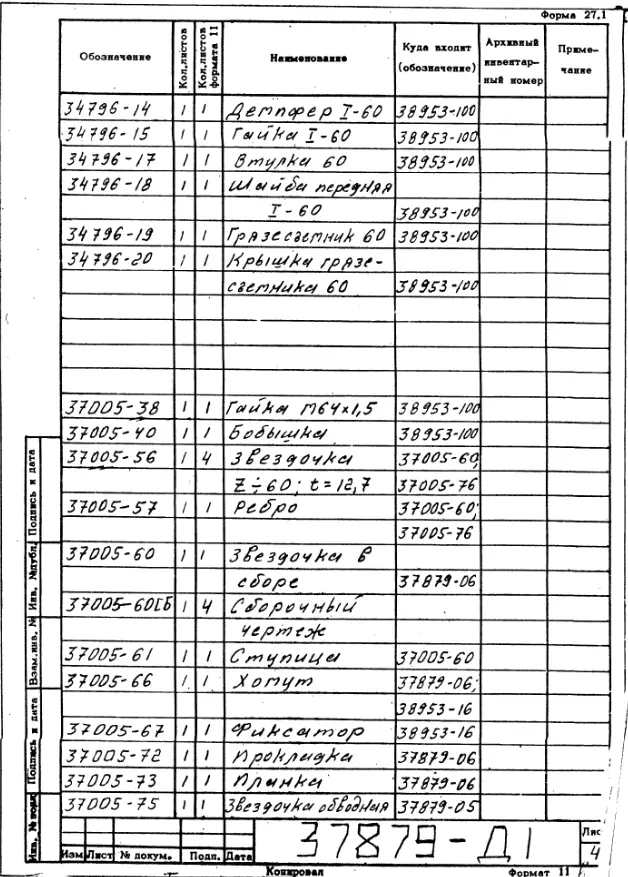 Форма 27.1
Обозначение Кол.листов Кол.листов формата 11 Наименование Куда входит (обозначение) Архивный инвентарный номер Примечание
34796-14 1 1 Демпфер I-60 38953-100
34796-15 1 1 Гайка I-60 38953-100
34796-17 1 1 Втулка 60 38953-100
34796-18 1 1 Шайба передняя
I-60 38953-100
34796-19 1 1 Грязесъемник 60 38953-100
34796-20 1 1 Крышка грязе-
съемника 60 38953-100
37005-38 1 1 Гайка М64х1,5 38953-100
37005-40 1 1 Бобышка 38953-100
37005-56 1 4 Звездочка 37005-60;
Z÷60; t=12,7 37005-76
37005-57 1 1 Ребро 37005-60;
37005-76
37005-60 1 1 Звездочка в
сборе 37879-06
37005-60СБ 1 4 Сборочный
чертеж
37005-61 1 1 Ступица 37005-60
37005-66 1 1 Хомут 37879-06;
38953-16
37005-67 1 1 Фиксатор 38953-16
37005-72 1 1 Прокладка 37879-06
37005-73 1 1 Планка 37879-06
37005-75 1 1 Звездочка обводная 37879-05
Подпись и дата
Инв. №дубл.
Взам.инв. №
Подпись и дата
Инв. № подл.
Изм Лист № докум. Подп. Дата
37879-Д1
Лис
4
Копировал Формат 11